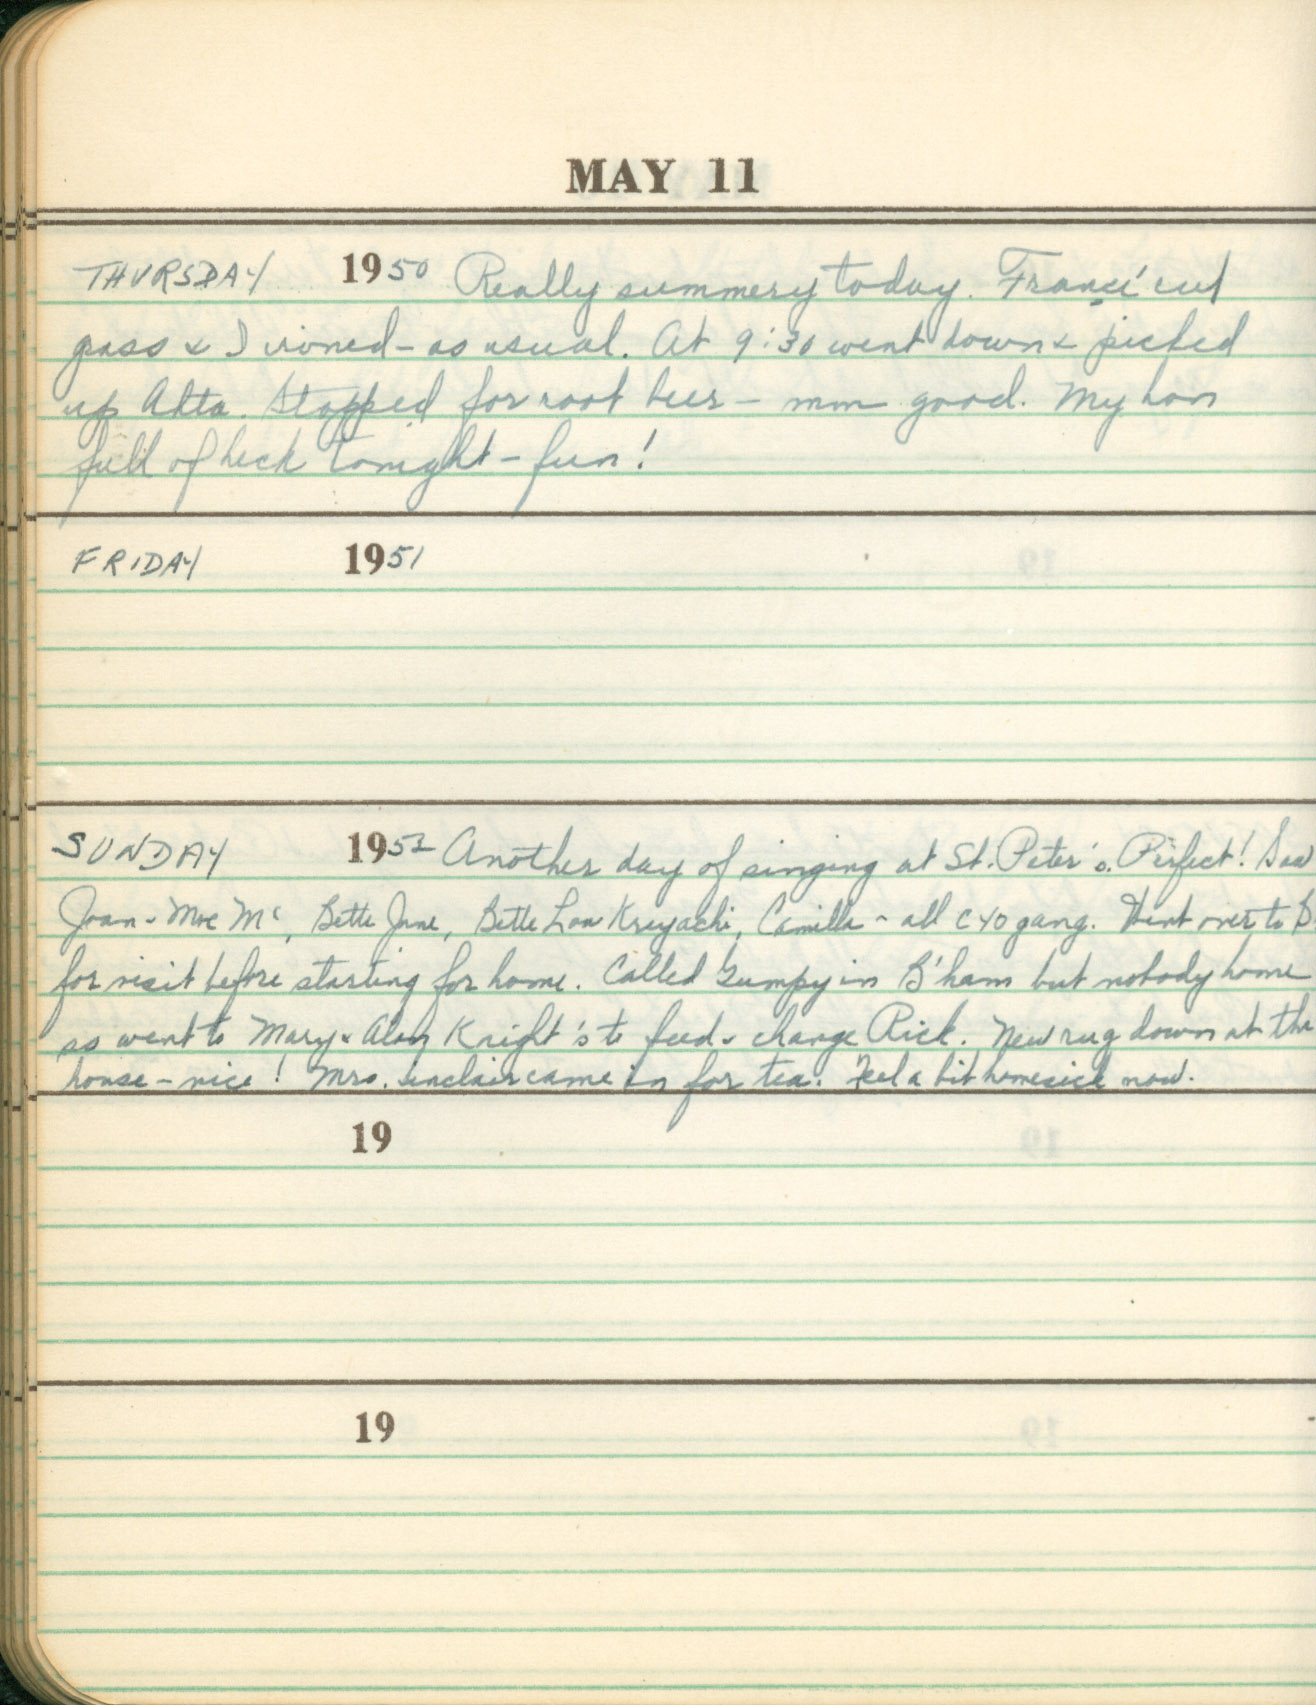 MAY 11
THURSDAY 1950 Really summery today. Franci' cut
grass & I ironed - as usual. At 9:30 went down & picked
up Alta. Stopped for root beer - mm good. My hon
full of heck tonight - fun!
FRIDAY 1951
SUNDAY 1952 Another day of singing at St. Peter's. Perfect! Saw
Joan - Moe Mc, Bette Jane, Bette Lou Kreyachi, Camilla - all CYO gang. Went over to
for visit before starting for home. Called Gumpy in B'ham but nobody home
so went to Mary & Alan Knight's to feed & change Rick. New rug down at the
house - nice! Mrs. Sinclair came in for tea. Feel a bit homesick now.
19
19